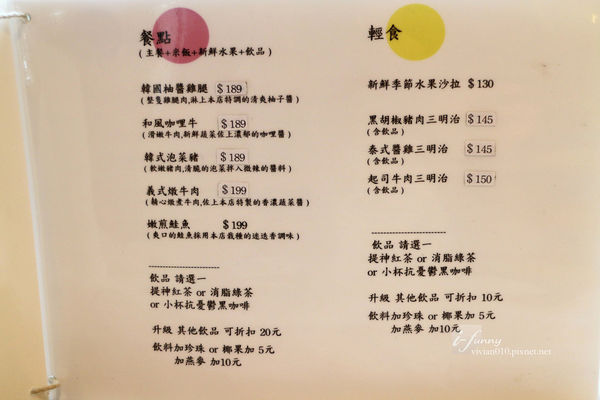 餐點
(主餐+米飯+新鮮水果+飲品)
韓國柚醬雞腿 $189
(整隻雞腿肉,淋上本店特調的清爽柚子醬)
和風咖哩牛 $189
(滑嫩牛肉,新鮮蔬菜佐上濃郁的咖哩醬)
韓式泡菜豬 $189
(軟嫩豬肉,清脆的泡菜拌入微辣的醬料)
義式燉牛肉 $199
(精心燉煮牛肉,佐上本店特製的香濃蔬菜醬)
嫩煎鮭魚 $199
(爽口的鮭魚採用本店栽種的迷迭香調味)
------------------------
飲品 請選一
提神紅茶 or 消脂綠茶
or 小杯抗憂鬱黑咖啡
升級 其他飲品 可折扣 20元
飲料加珍珠 or 椰果加 5元
加燕麥 加10元
輕食
新鮮季節水果沙拉 $130
黑胡椒豬肉三明治 $145
(含飲品)
泰式醬雞三明治 $145
(含飲品)
起司牛肉三明治 $150
(含飲品)
------------------------
飲品 請選一
提神紅茶 or 消脂綠茶
or 小杯抗憂鬱黑咖啡
升級 其他飲品 可折扣 10元
飲料加珍珠 or 椰果加 5元
加燕麥 加10元
i-funny
vivian010.pixnet.net